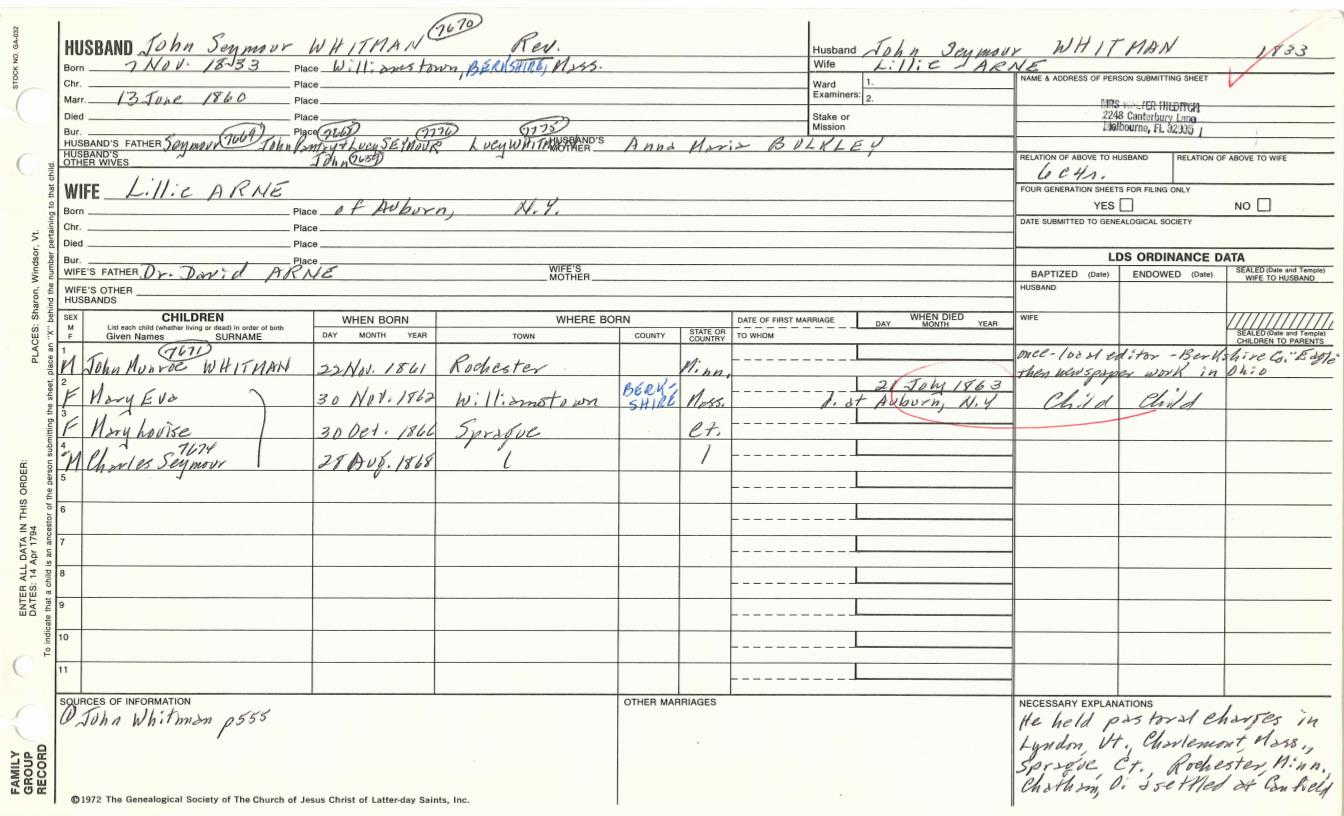 STOCK NO. GA-032
HUSBAND John Seymour WHITMAN 7670 Rev.
Born 7 Nov. 1833 Place Williamstown, BERKSHIRE, Mass.
Chr. Place
Marr. 13 June 1860 Place
Died Place
Bur. Place
HUSBAND'S FATHER Seymour 7669 John 7668 Lucy SEYMOUR 7776 Lucy WHITMAN 7775 HUSBAND'S MOTHER Anna Maria BULKLEY
HUSBAND'S OTHER WIVES John
WIFE Lillie ARNE
Born Place of Auburn, N.Y.
Chr. Place
Died Place
Bur. Place
WIFE'S FATHER Dr. David ARNE WIFE'S MOTHER
WIFE'S OTHER HUSBANDS
Husband John Seymour WHITMAN 1833
Wife Lillie ARNE
Ward Examiners: 1. 2.
Stake or Mission
NAME & ADDRESS OF PERSON SUBMITTING SHEET
MRS
2248 Canterbury Lane
Melbourne, FL
RELATION OF ABOVE TO HUSBAND RELATION OF ABOVE TO WIFE
6C4r.
FOUR GENERATION SHEETS FOR FILING ONLY
YES NO
DATE SUBMITTED TO GENEALOGICAL SOCIETY
LDS ORDINANCE DATA
BAPTIZED (Date) ENDOWED (Date) SEALED (Date and Temple) WIFE TO HUSBAND
HUSBAND
WIFE
SEALED (Date and Temple) CHILDREN TO PARENTS
SEX M F CHILDREN List each child (whether living or dead) in order of birth Given Names SURNAME WHEN BORN DAY MONTH YEAR WHERE BORN TOWN COUNTY STATE OR COUNTRY DATE OF FIRST MARRIAGE TO WHOM WHEN DIED DAY MONTH YEAR
1 M John Munroe 7671 WHITMAN 22 Nov. 1861 Rochester Minn. once-local editor - Berkshire Co. "Eagle" then newspaper work in Ohio
2 F Mary Eva 30 Nov. 1862 Williamstown BERKSHIRE Mass. 21 July 1863 d. at Auburn, N.Y Child Child
3 F Mary Louise 30 Oct. 1866 Sprague Ct.
4 M Charles Seymour 7674 28 Aug. 1868
5
6
7
8
9
10
11
SOURCES OF INFORMATION
① John Whitman p555
OTHER MARRIAGES
NECESSARY EXPLANATIONS
He held pastoral charges in
Lyndon, Vt., Charlemont, Mass.,
Sprague, Ct., Rochester, Minn.,
Chatham, O. & settled at Canfield
©1972 The Genealogical Society of The Church of Jesus Christ of Latter-day Saints, Inc.
FAMILY GROUP RECORD
ENTER ALL DATA IN THIS ORDER:
DATES: 14 Apr 1794
PLACES: Sharon, Windsor, Vt.
To indicate that a child is an ancestor of the person submitting the sheet, place an "X" behind the number pertaining to that child.